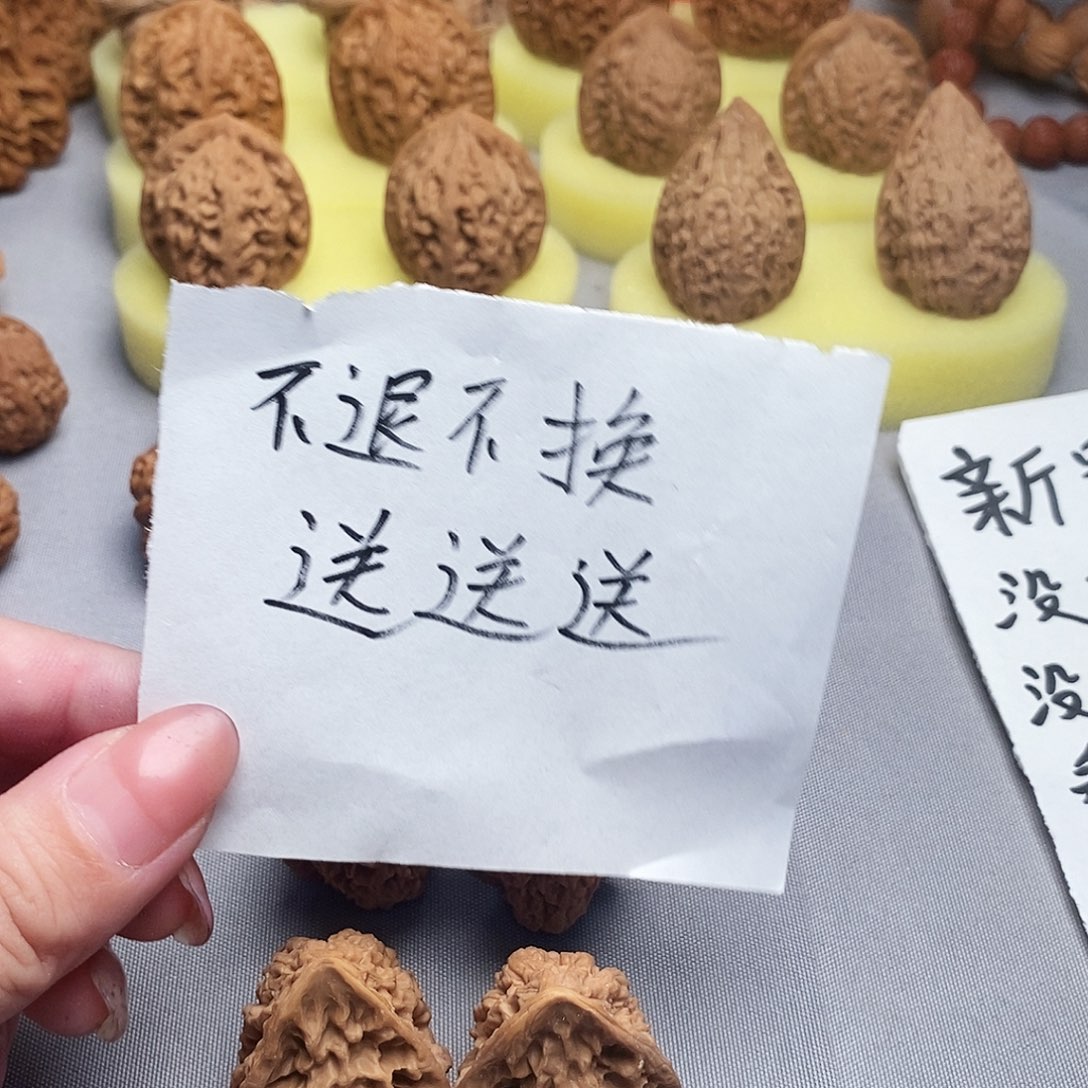 不退不换
送送送
新
没
没